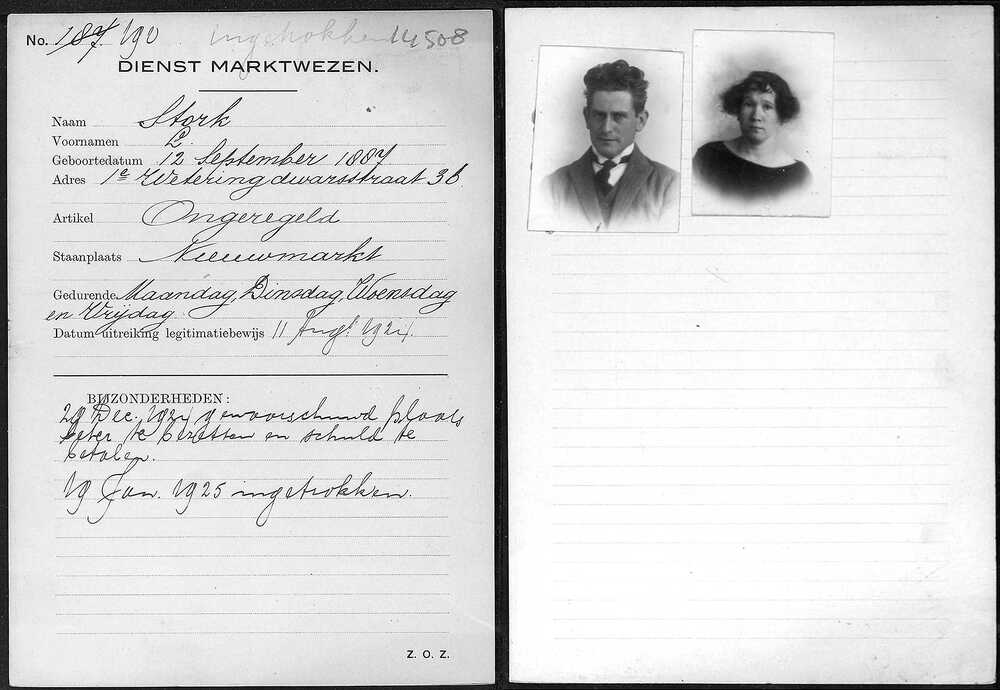 No. 187 190 ingetrokken 14508
DIENST MARKTWEZEN.
Naam Stork
Voornamen L.
Geboortedatum 12 September 1887
Adres 1e Weteringdwarsstraat 36
Artikel Ongeregeld
Staanplaats Nieuwmarkt
Gedurende Maandag, Dinsdag, Woensdag
en Vrijdag.
Datum uitreiking legitimatiebewijs 11 Aug. 1924.
BIJZONDERHEDEN:
29 Dec. 1924 gewaarschuwd plaats
beter te bezetten en schuld te
betalen.
19 Jan. 1925 ingetrokken.
Z. O. Z.